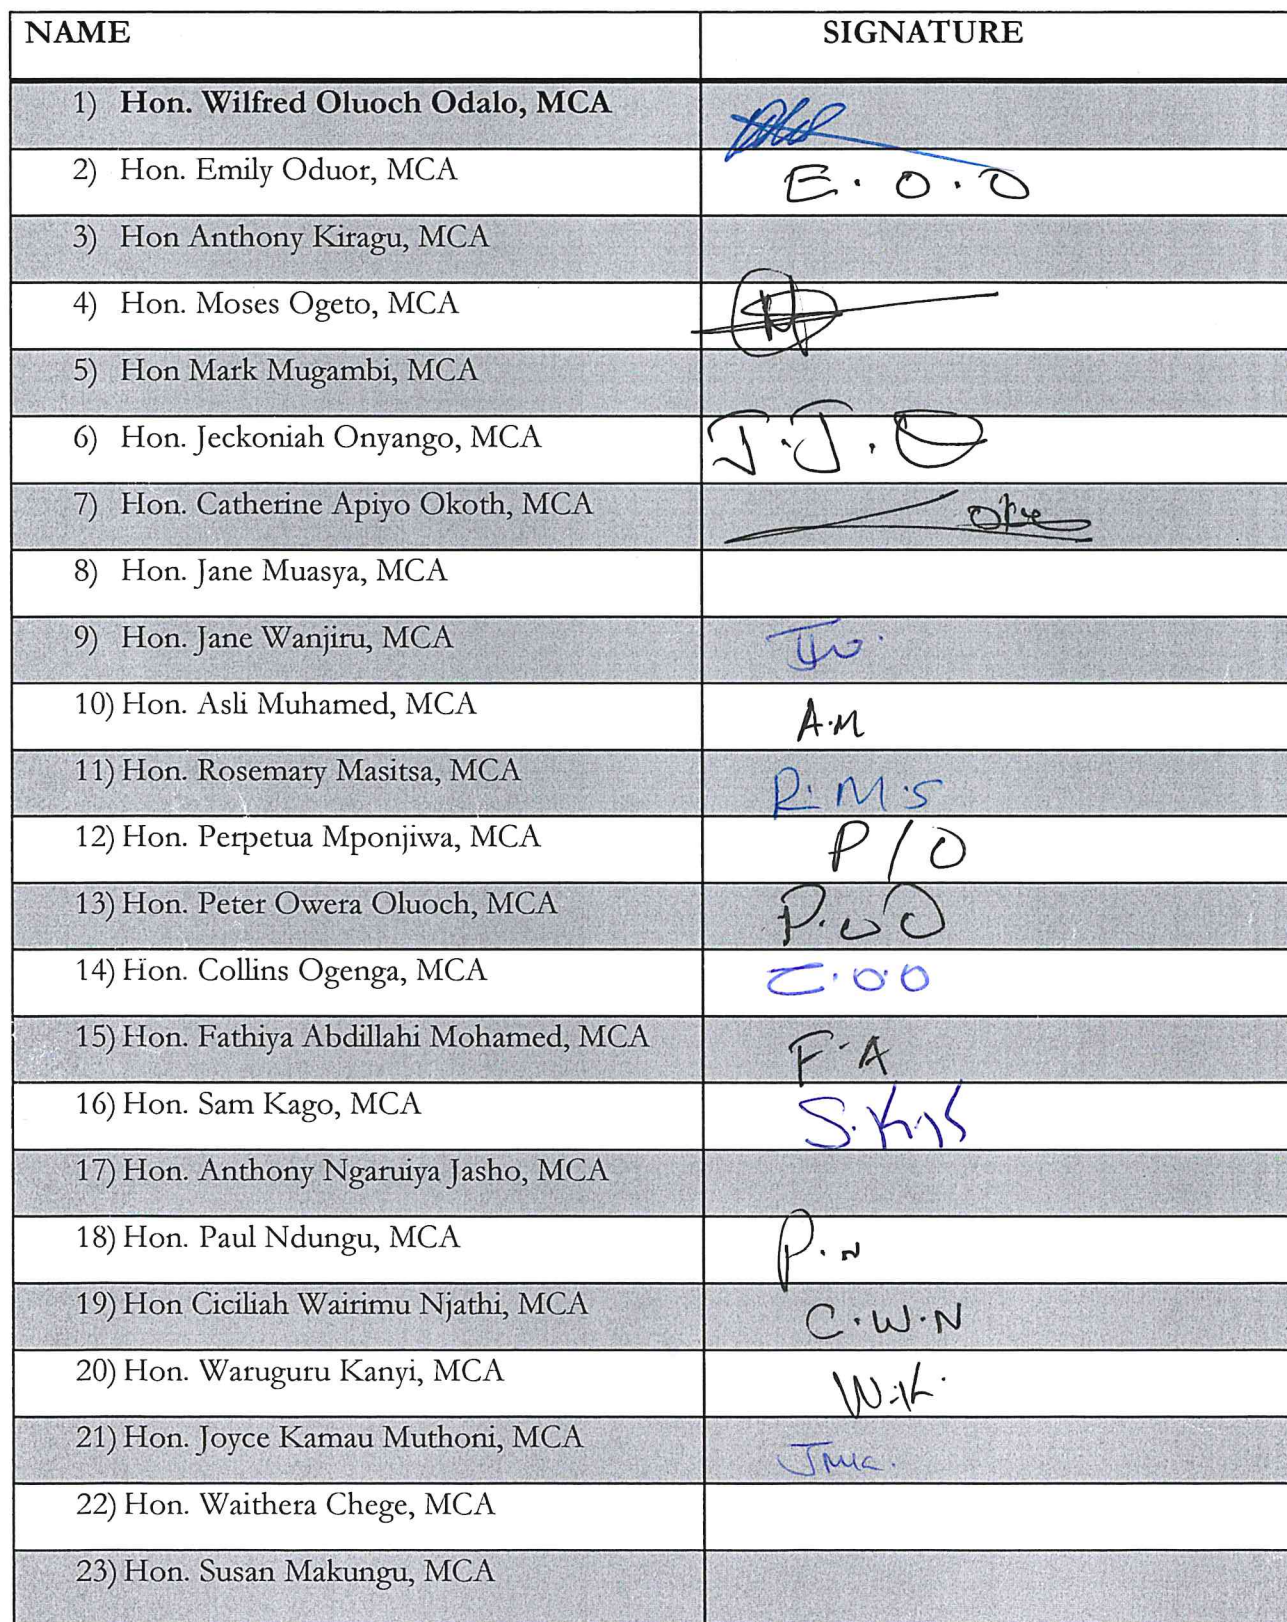 NAME SIGNATURE
1) Hon. Wilfred Oluoch Odalo, MCA
2) Hon. Emily Oduor, MCA E. O. O
3) Hon Anthony Kiragu, MCA
4) Hon. Moses Ogeto, MCA
5) Hon Mark Mugambi, MCA
6) Hon. Jeckoniah Onyango, MCA J.J.O
7) Hon. Catherine Apiyo Okoth, MCA
8) Hon. Jane Muasya, MCA
9) Hon. Jane Wanjiru, MCA
10) Hon. Asli Muhamed, MCA A.M
11) Hon. Rosemary Masitsa, MCA R.M.S
12) Hon. Perpetua Mponjiwa, MCA P/O
13) Hon. Peter Owera Oluoch, MCA P.OO
14) Hon. Collins Ogenga, MCA C.O.O
15) Hon. Fathiya Abdillahi Mohamed, MCA F.A
16) Hon. Sam Kago, MCA
17) Hon. Anthony Ngaruiya Jasho, MCA
18) Hon. Paul Ndungu, MCA P.N
19) Hon Ciciliah Wairimu Njathi, MCA C.W.N
20) Hon. Waruguru Kanyi, MCA W.K.
21) Hon. Joyce Kamau Muthoni, MCA
22) Hon. Waithera Chege, MCA
23) Hon. Susan Makungu, MCA